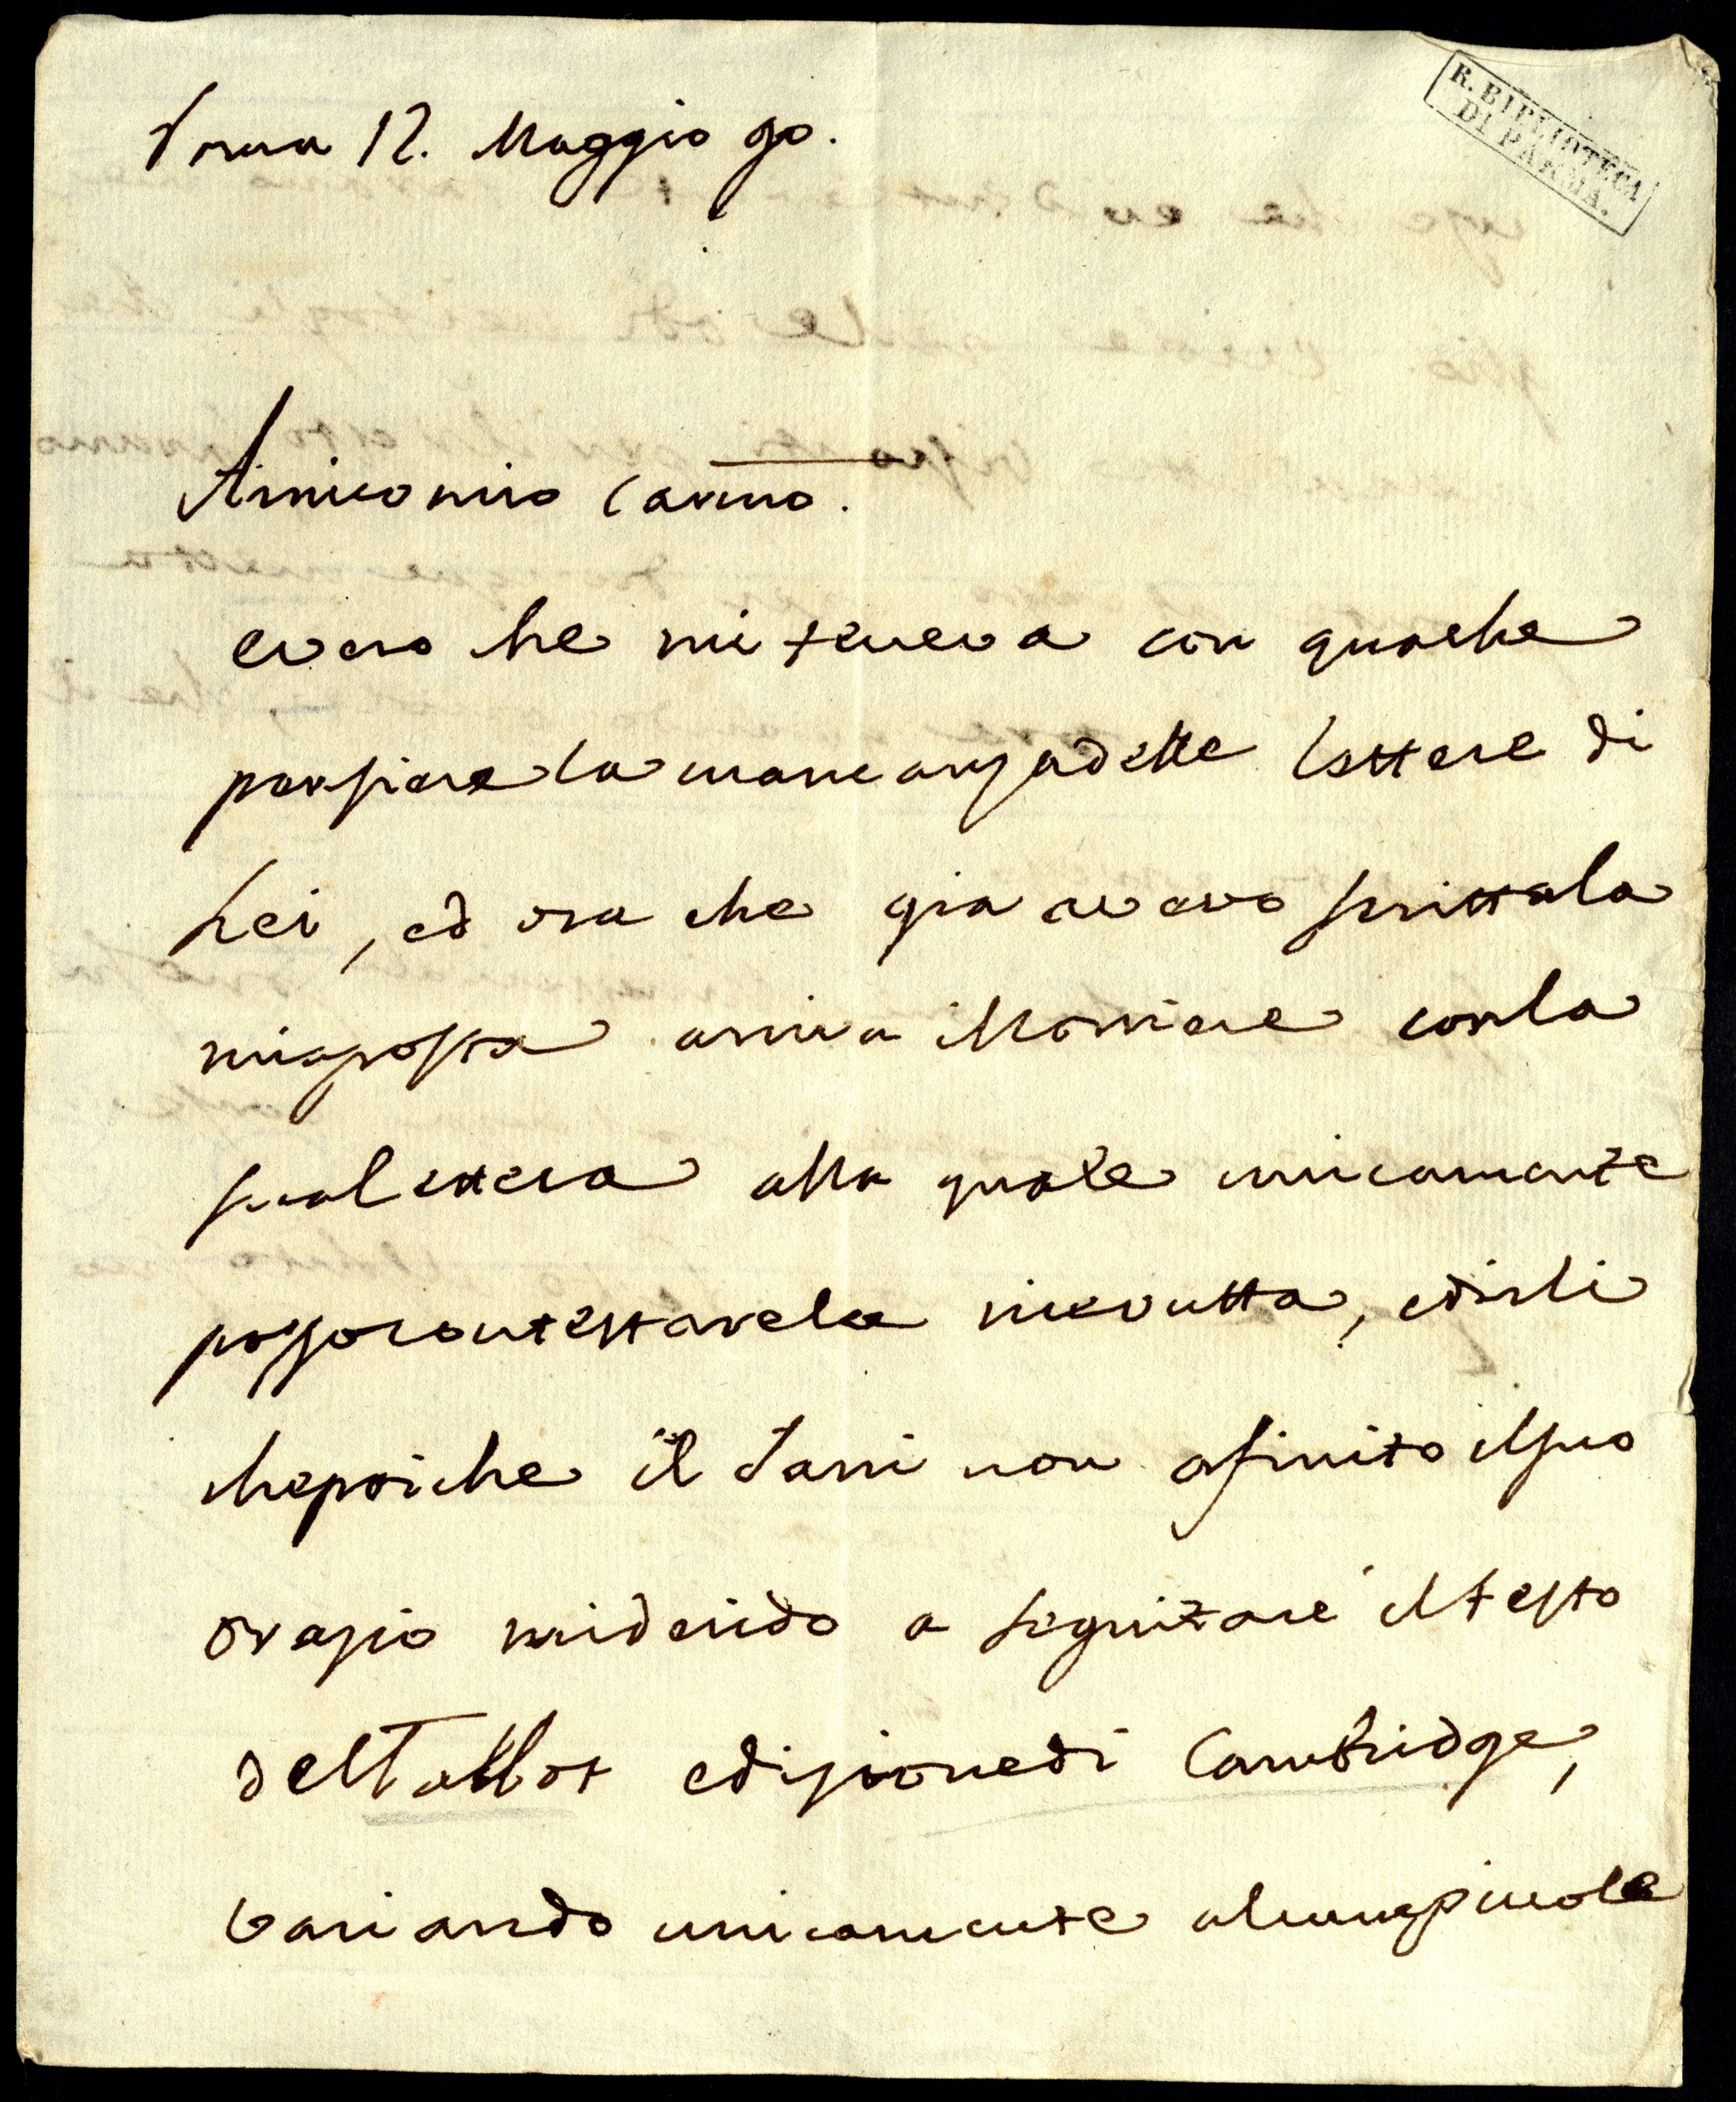 Roma 12. Maggio 90.
R. BIBLIOTECA
DI PARMA.
Amico mio Carmo.
evero che mi teneva con quache
pensiere la mancanza delle lettere di
Lei, ed ora che gia avevo scritta la
risposta arriva il Corriere con la
sua lettera alla quale unicamente
posso contestarela ricevutta, edirli
che poiche il Fani non a finito il suo
Orazio mi derido a seguitare il testo
del Talbot edizione di Cambridge,
variando unicamente alcune picole